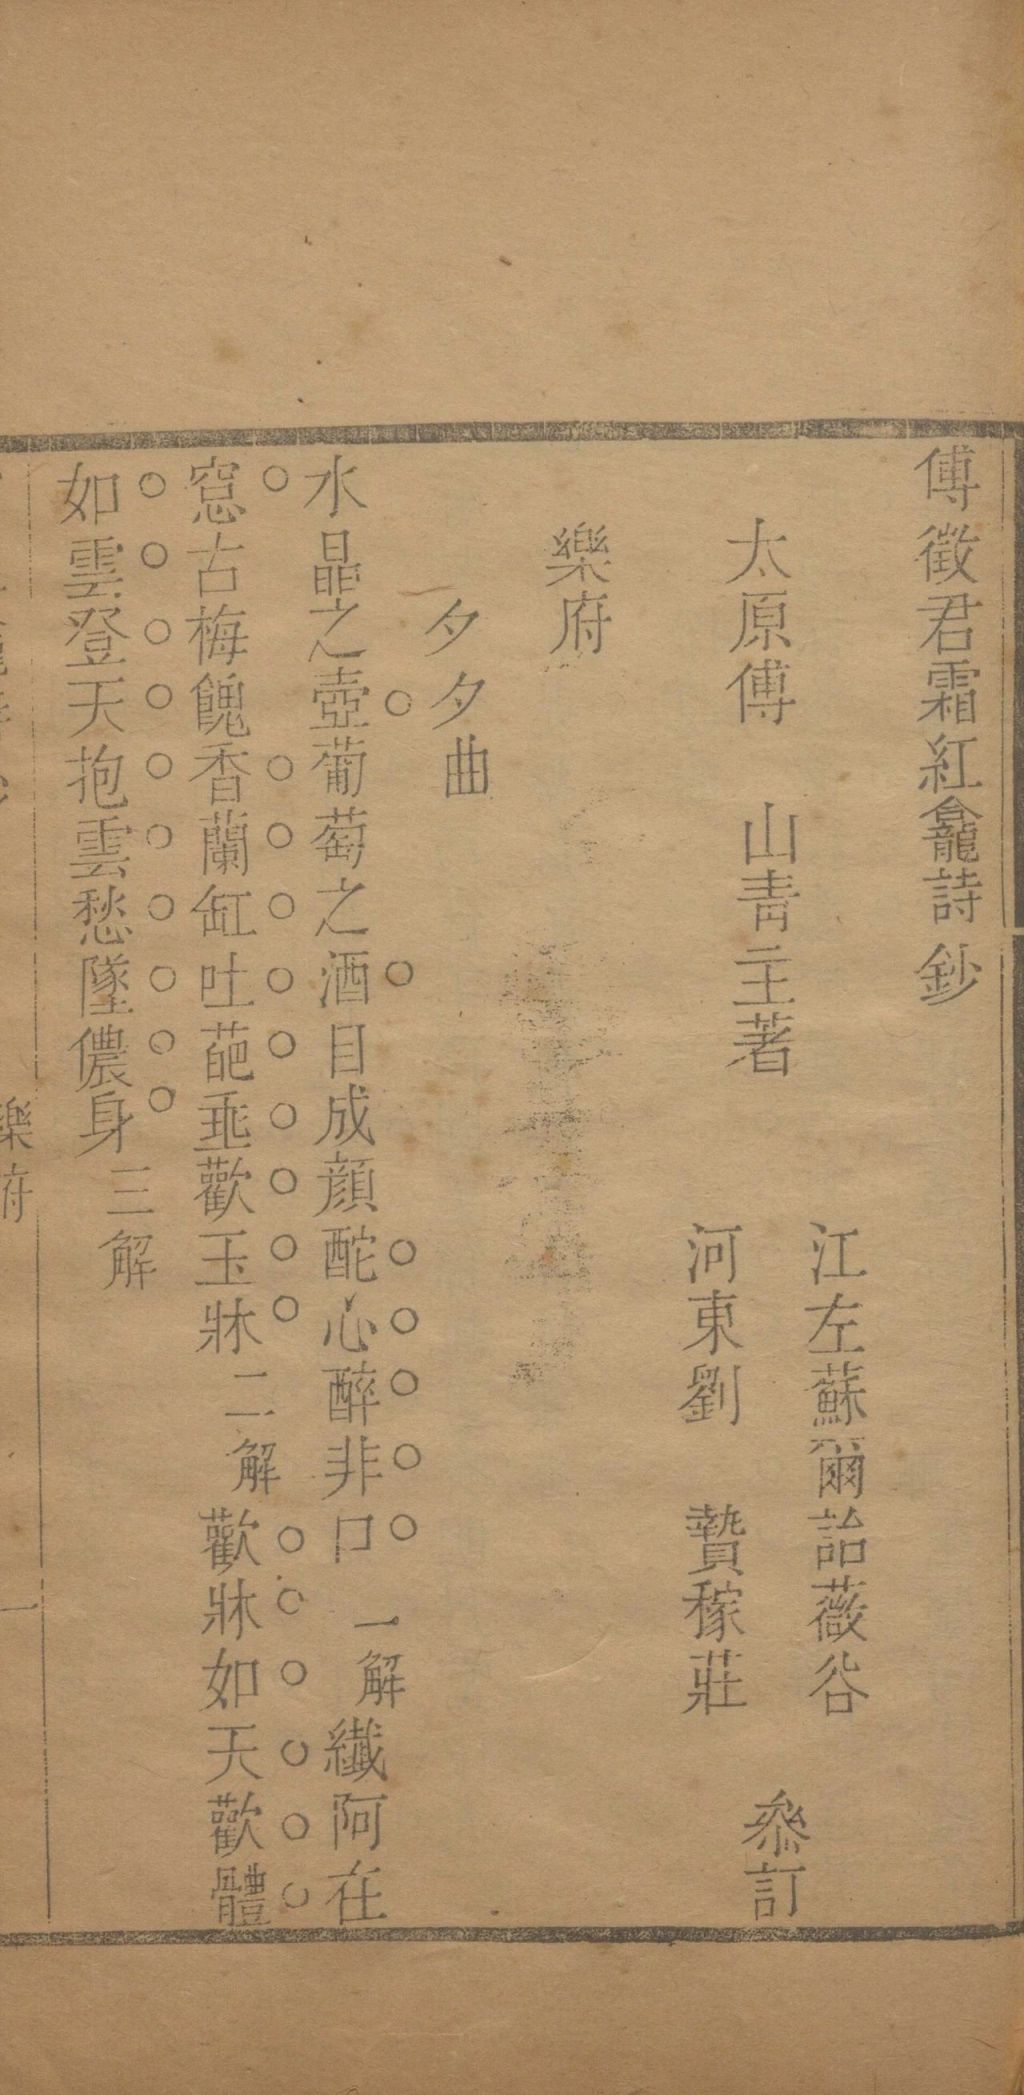 傅徵君霜紅龕詩鈔
江左蘇爾詒薇谷
太原傅　山青主著　參訂
河東劉　贄稼莊
樂府
夕夕曲
水晶之壺葡萄之酒目成顏酡心醉非口一解纖阿在
窓古梅餽香蘭缸吐葩垂歡玉牀二解歡牀如天歡體
如雲登天抱雲愁墜儂身三解
樂府　一